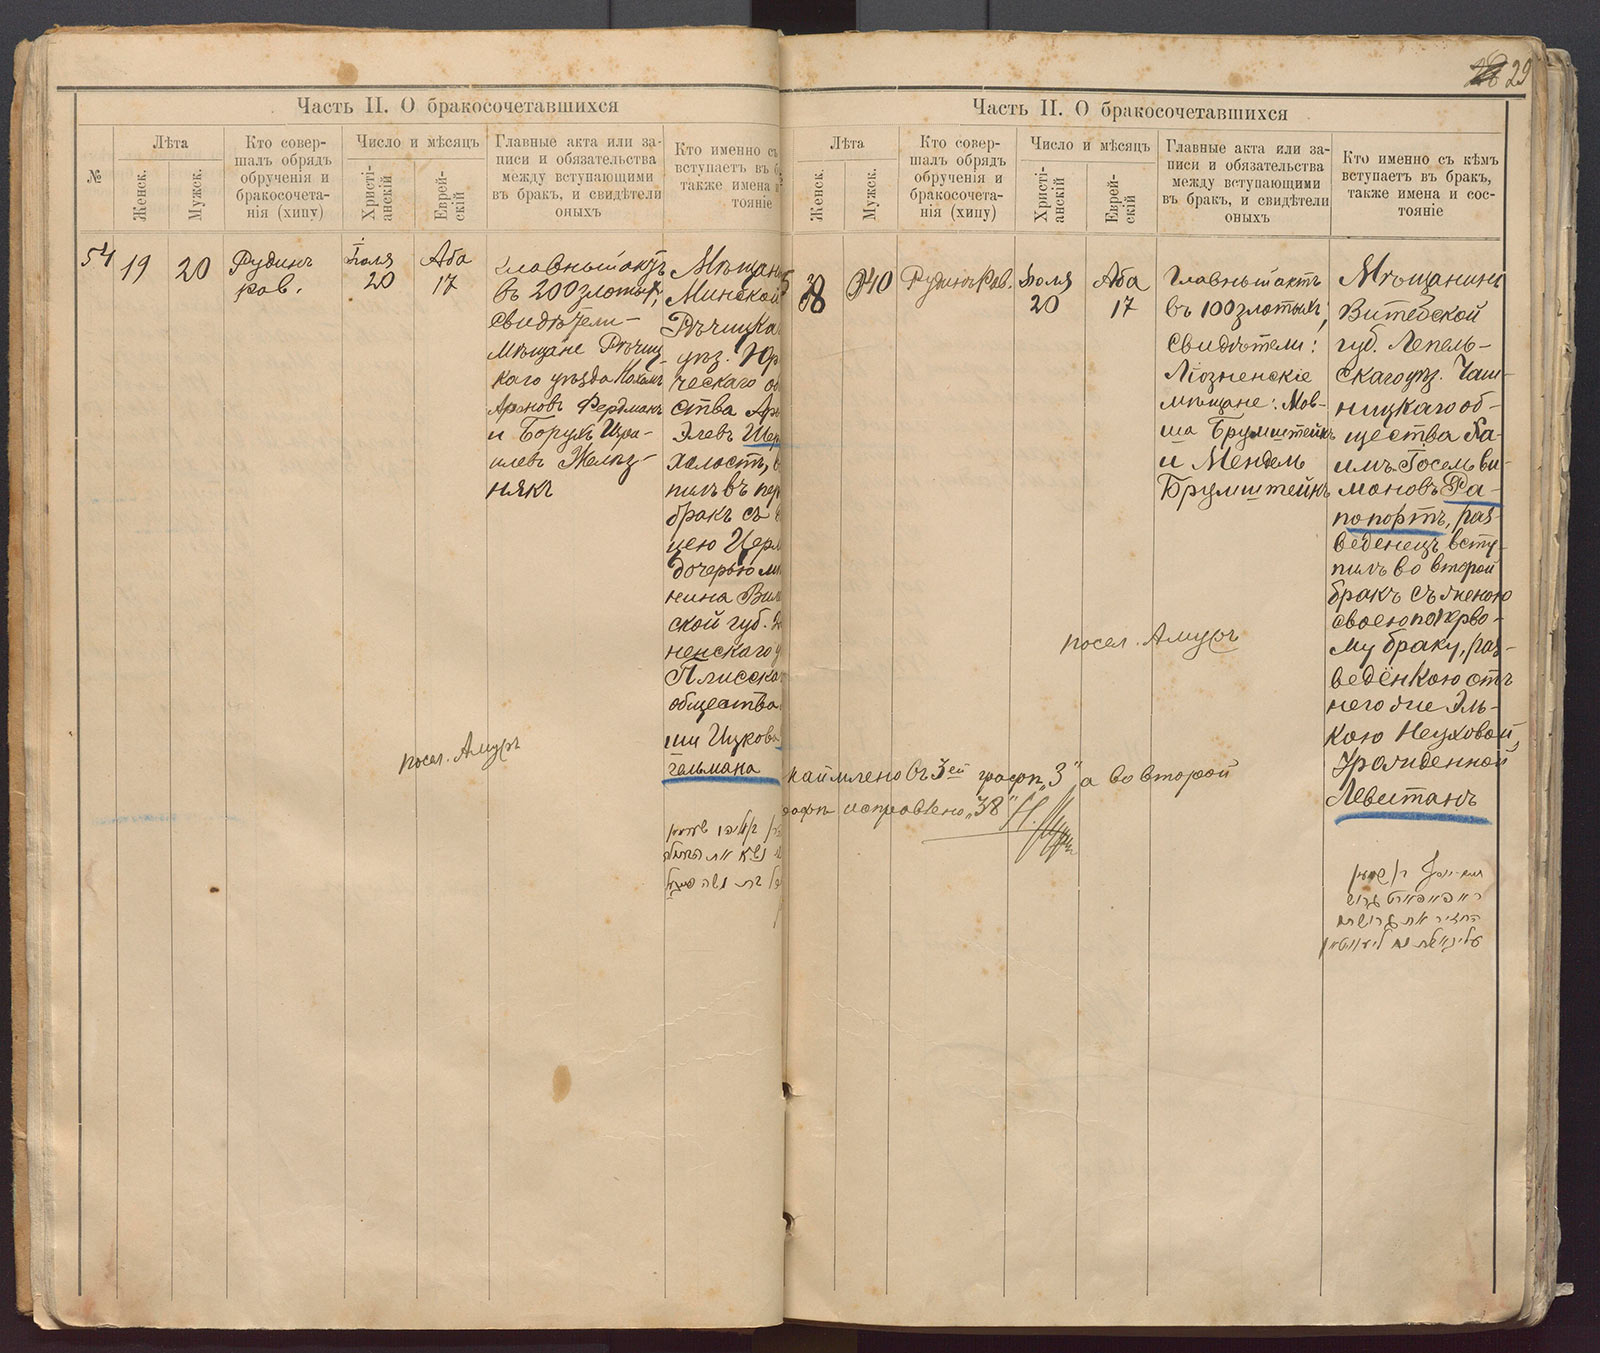 Часть II. О бракосочетавшихся
№
Лѣта
Женск.
Мужск.
Кто совер-
шалъ обрядъ
обрученія и
бракосочета-
нія (хипу)
Число и мѣсяцъ
Христі-
анскій
Еврей-
скій
Главные акта или за-
писи и обязательства
между вступающими
въ бракъ, и свидѣтели
оныхъ
Кто именно съ
вступаетъ въ б
также имена и
тояніе
54
19
20
Рудинъ
рав.
Іюля
20
Аба
17
Главный актъ
въ 200 злотых,
свидѣтели-
Мѣщане Рѣчиц-
каго уѣзда
Фердманъ
и Борухъ Изра-
илевъ Желѣз-
някъ
Мѣщан
Минской
Рѣчицка
уѣз. Юр
ческаго об
ства
Элевъ Шер
Холостъ, в
пилъ въ пер
бракъ съ
цею
дочерью мѣ
нина Вил
ской губ.
ненскаго у
Плисска
общества
Ицкова
гельмана
посел. Амуръ
28 29
Часть II. О бракосочетавшихся
Лѣта
Женск.
Мужск.
Кто совер-
шалъ обрядъ
обрученія и
бракосочета-
нія (хипу)
Число и мѣсяцъ
Христі-
анскій
Еврей-
скій
Главные акта или за-
писи и обязательства
между вступающими
въ бракъ, и свидѣтели
оныхъ
Кто именно съ кѣмъ
вступаетъ въ бракъ,
также имена и сос-
тояніе
5
38
40
Рудинъ Рав.
Іюля
20
Аба
17
Главный актъ
въ 100 злотых,
Свидѣтели:
Лiозненскіе
мѣщане: Мов-
ша Брумштейнъ
и Мендель
Брумштейнъ
Мѣщанинъ
Витебской
губ. Лепель-
скаго уѣз. Чаш-
ницкаго об-
щества Ха-
имъ-Іосель Ви-
мановъ Ра-
попортъ, раз-
веденецъ всту-
пилъ во второй
бракъ съ женою
своею по перво-
му браку, раз-
ведёнкою отъ
него же Эль-
кою Неуховой,
урожденной
Левитанъ
посел. Амуръ
въ 3ей графѣ „3" а во второй
графѣ исправлено „38"
ראפאפארט גרוש
החזיר את גרושתו